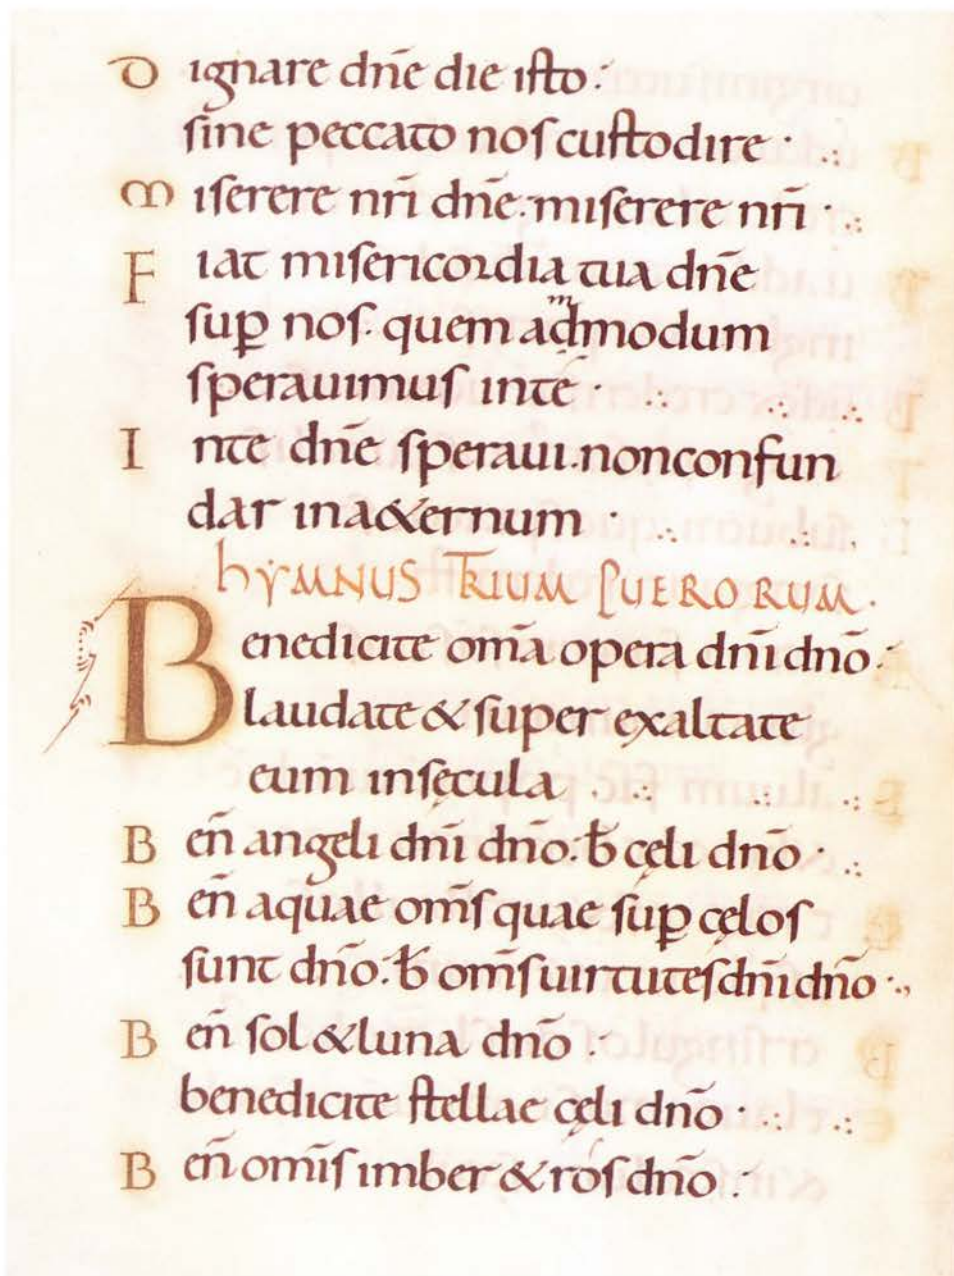 Dignare dn̄e die iſto:
ſine peccato noſ cuſtodire ·
Miſerere nr̄i dn̄e: miſerere nr̄i ·
Fiat miſericordia tua dn̄e
ſuꝑ noſ. quem admmodum
ſperauimuſ inte ·
Inte dn̄e ſperaui. nonconfun
dar ina&ernum ·
hYMNUS TRIUM PUERORUM.
Benedicite om̄a opera dn̄i dn̄o:
laudate & ſuper exaltate
eum inſęcula
Ben̄ angeli dn̄i dn̄o: b̄ cęli dn̄o ·
Ben̄ aquae om̄ſ quae ſuꝑ cęloſ
ſunt dn̄o: b̄ om̄ſ uirtuteſ dn̄i dn̄o ·
Ben̄ ſol & luna dn̄o :
benedicite ſtellae cęli dn̄o ·
Ben̄ om̄iſ imber & róſ dn̄o :